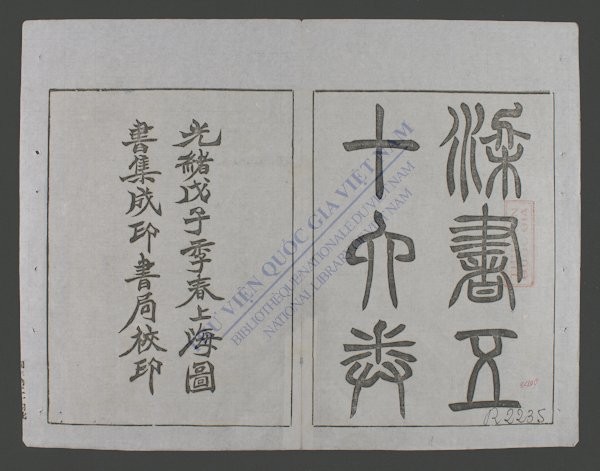 梁書五
十六卷
光緒戊子季春上海圖
書集成印書局校印
THƯ VIỆN QUỐC GIA VIỆT NAM
BIBLIOTHÈQUE NATIONALE DU VIET NAM
NATIONAL LIBRARY OF VIETNAM
R2235